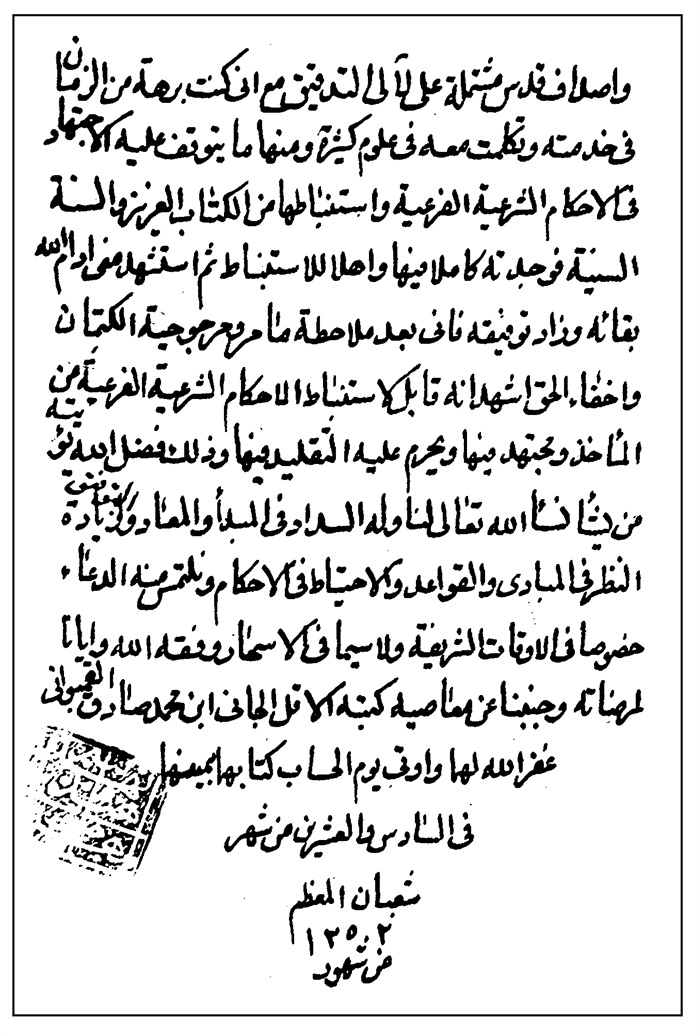 واصداف قدس مشتملة على لآلى التدقيق مع انى كنت برهة من الزمان
فى خدمته وتكلمت معه فى علوم كثيرة ومنها ما يتوقف عليه الاجتهاد
فى الاحكام الشرعية الفرعية واستنباطها من الكتاب العزيز والسنة
السنية فوجدته كاملا فيها واهلا للاستنباط ثم استشهد منى ادام الله
بقائه وزاد توفيقه فانى بعد ملاحظة ما مر ومرجوحية الكتمان
واخفاء الحق اشهد انه قابل لاستنباط الاحكام الشرعية الفرعية من
المأخذ ومجتهد فيها ويحرم عليه التقليد فيها وذلك فضل الله يؤتيه
من يشأ نسأ الله تعالى لنا وله السداد فى المبدأ والمعاد والتوفيق لزيادة
النظر فى المبادى والقواعد والاحتياط فى الاحكام ونلتمس منه الدعاء
خصوصا فى الاوقات الشريفة ولاسيما فى الاسحار وفقه الله وايانا
لمرضاته وجنبنا عن معاصيه كتبه الاقل الجانى ابن محمد صادق
غفر الله لهما واوتى يوم الحساب كتابهما بيمينهما
فى السادس والعشرين من شهر
شعبان المعظم
١٢٥٢